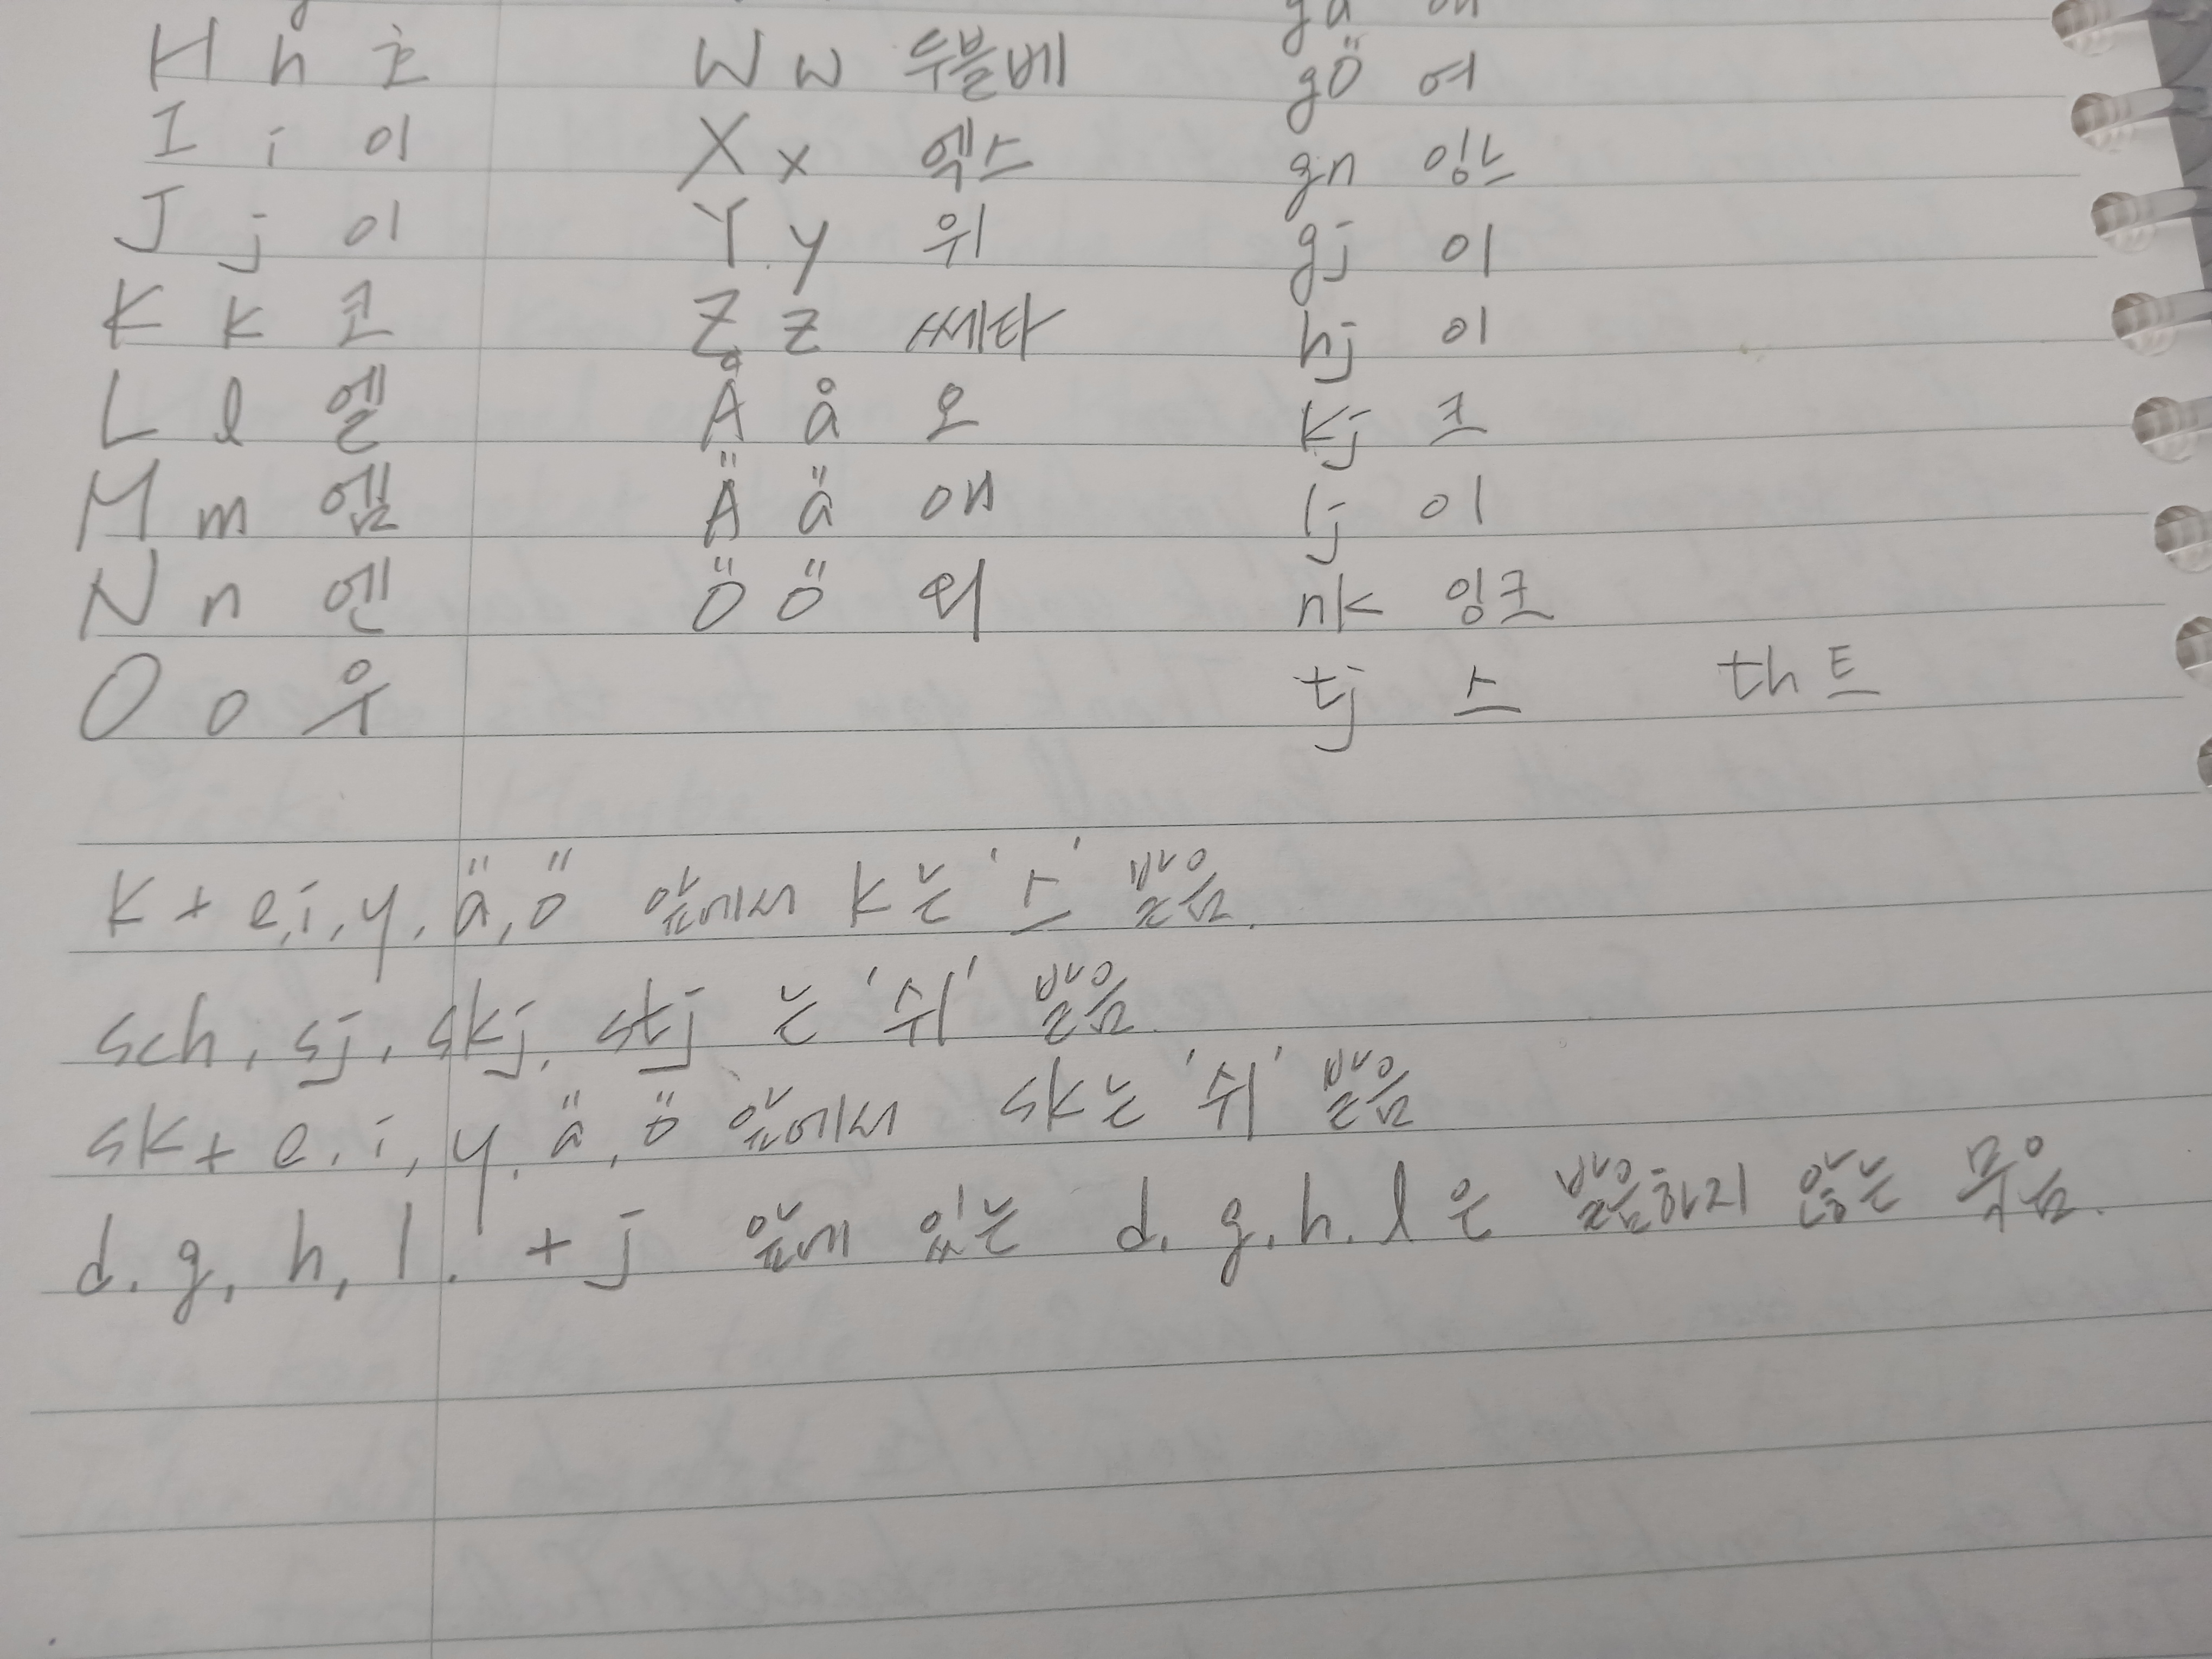 H h 호 W w 두블베 gö 어
I i 이 X x 엑스 gn 잉느
J j 이 Y y 위 gj 이
K k 코 Z z 쎄타 hj 이
L l 엘 Å å 오 kj 크
M m 엠 Ä ä 애 lj 이
N n 엔 Ö ö 외 nk 잉크
O o 우 tj 스 th 트
k + e, i, y, ä, ö 앞에서 k는 '스' 발음.
sch, sj, skj, stj 는 '쉬' 발음.
sk + e, i, y, ä, ö 앞에서 sk는 '쉬' 발음
d, g, h, l. + j 앞에 있는 d, g, h, l 은 발음하지 않는 묵음.